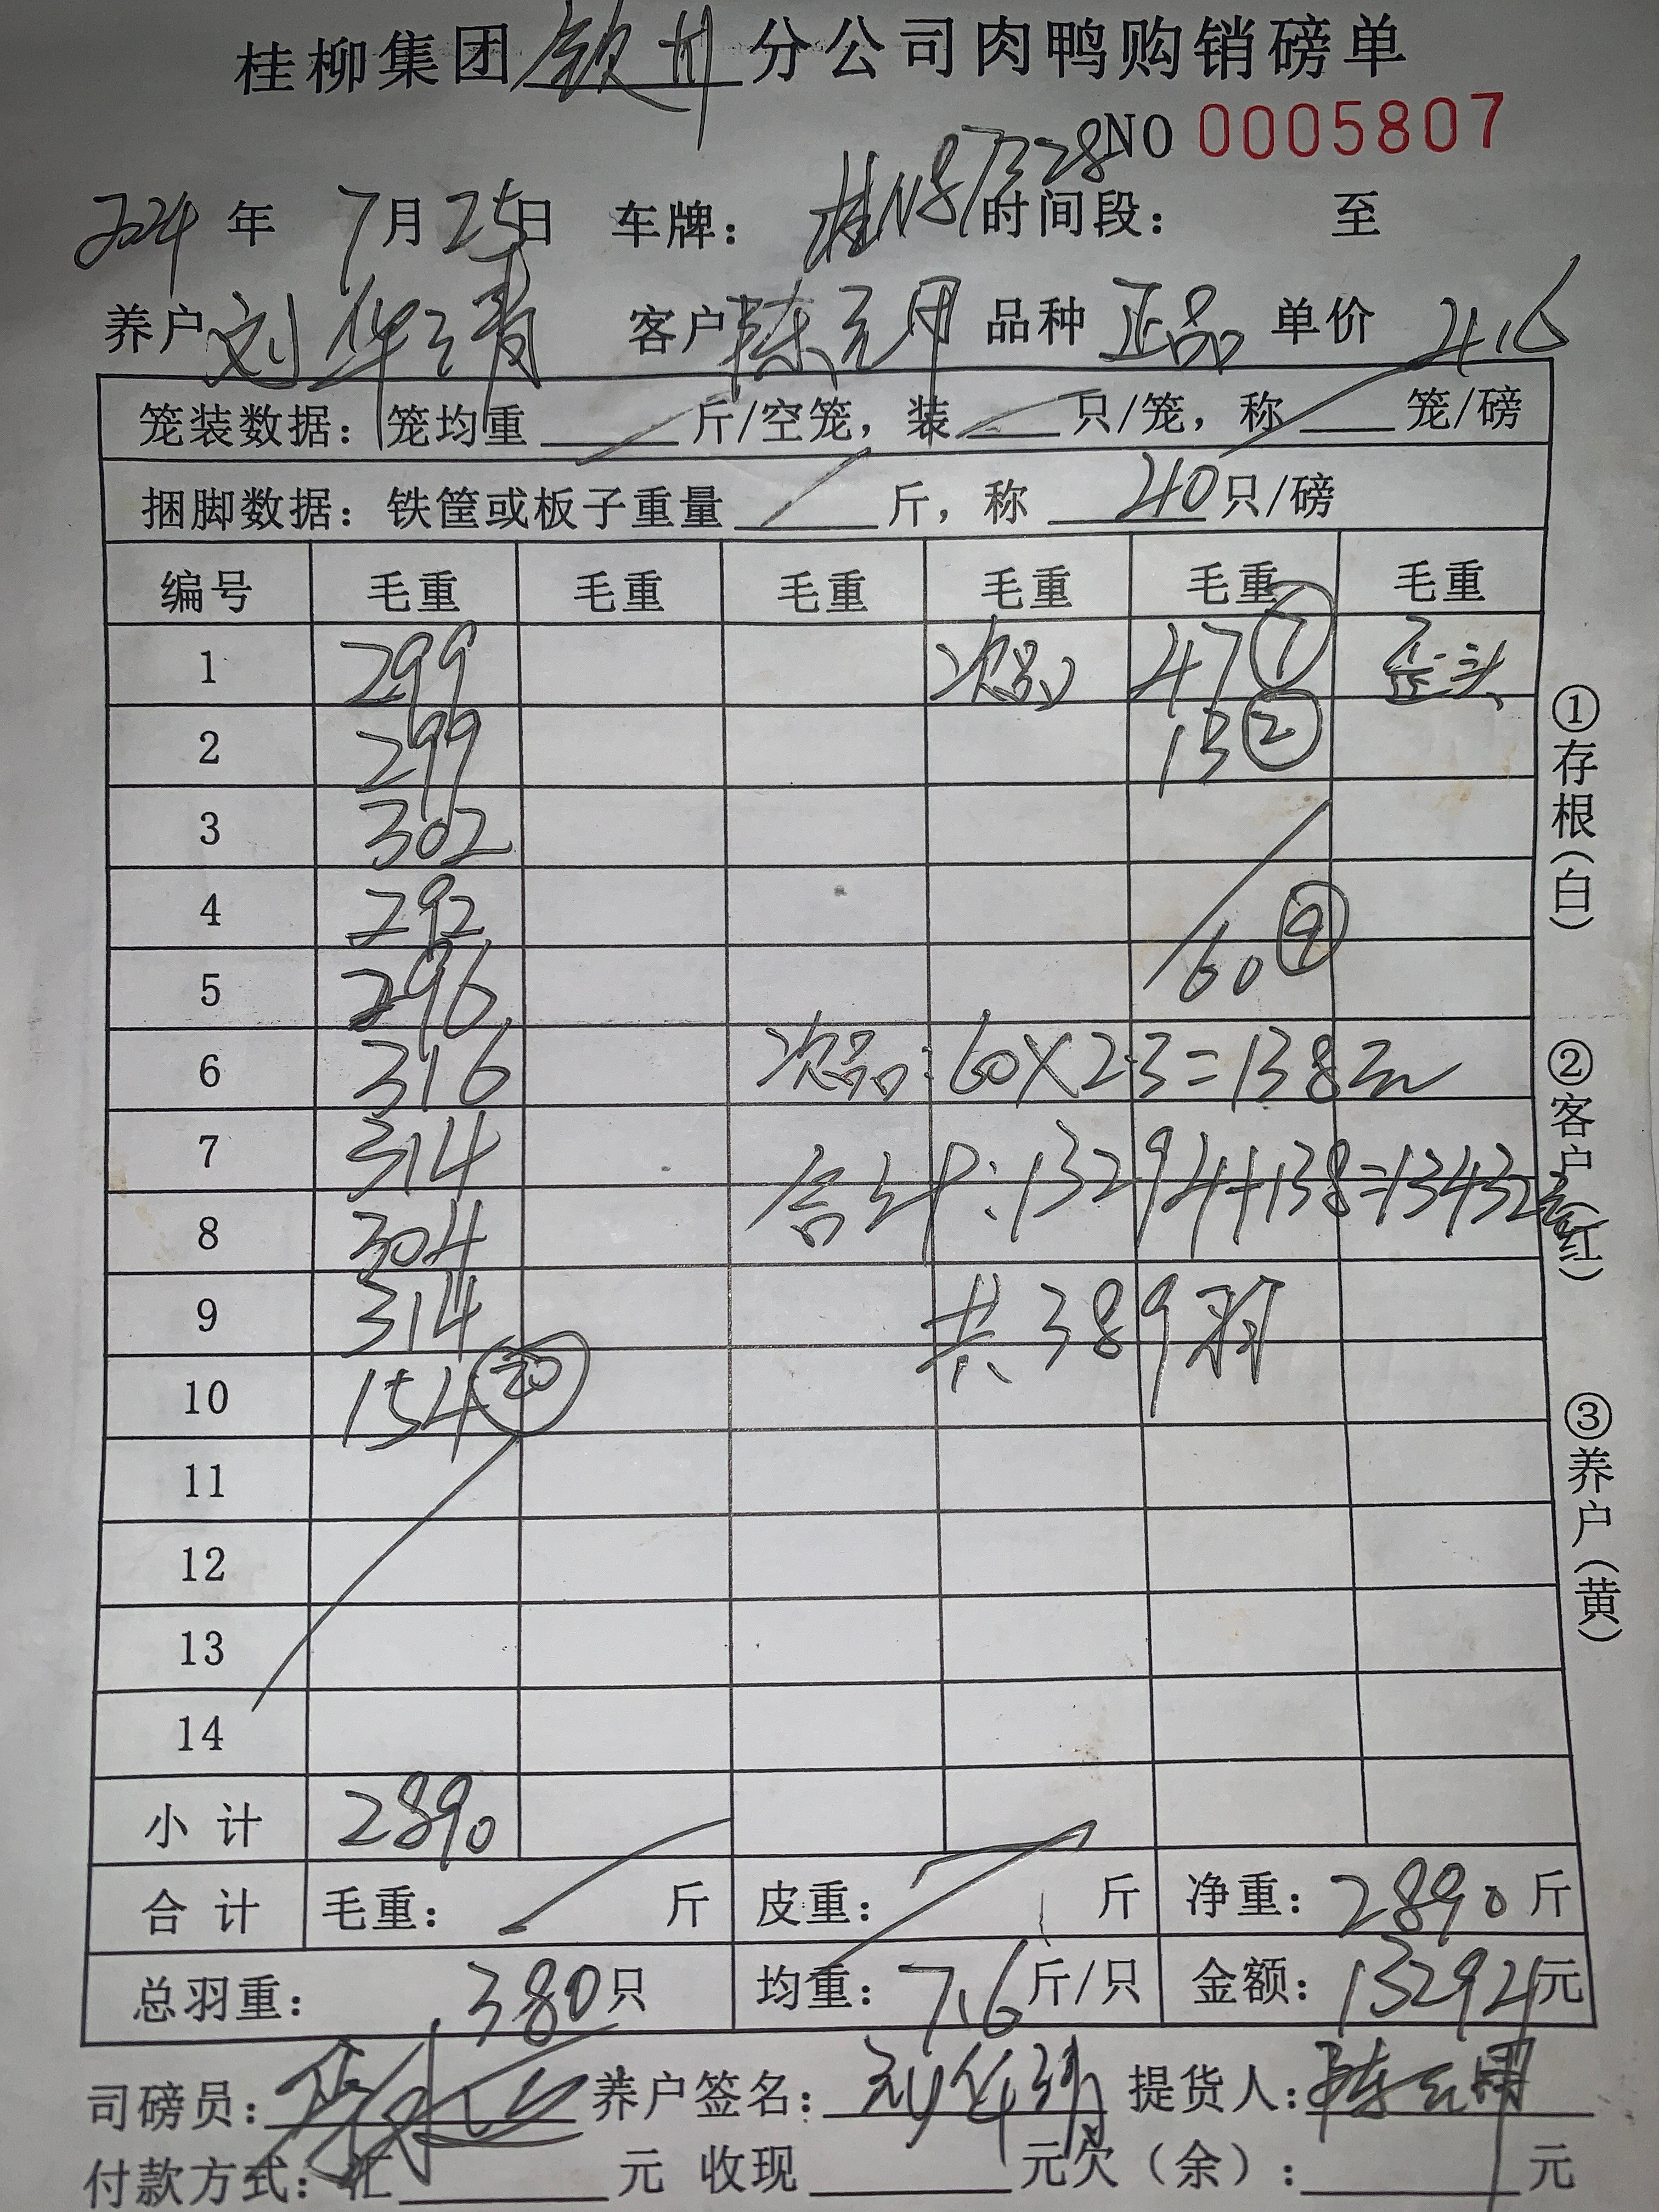 桂柳集团钦州分公司肉鸭购销磅单
NO 0005807
2024年 7月25日 车牌：桂N87328 时间段： 至
养户 刘华清 客户 陈元用 品种 正品 单价 4.6
笼装数据：笼均重 斤/空笼，装 只/笼，称 笼/磅
捆脚数据：铁筐或板子重量 斤，称 40 只/磅
编号 毛重 毛重 毛重 毛重 毛重 毛重
1 299 次品 47 ⑦ 歪头
2 299 13 ②
3 302
4 292
5 296 60 ⑨
6 316 次品：60×2.3=138元
7 314 合计：13294+138=13432元
8 304
9 314 共389羽
10 154 ⑳
11
12
13
14
小计 2890
合计 毛重： 斤 皮重： 斤 净重：2890斤
总羽重：380只 均重：7.6斤/只 金额：13294元
司磅员： 养户签名：刘华清 提货人：陈元用
付款方式：汇 元 收现 元欠（余）： 元
①存根（白）
②客户（红）
③养户（黄）